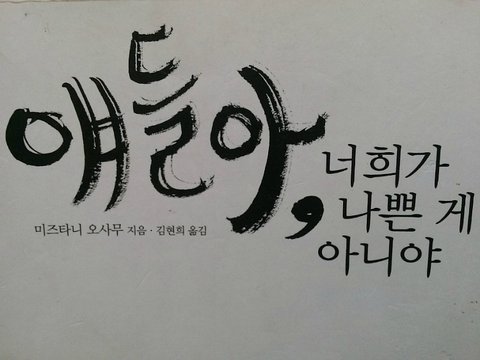 얘들아,
너희가
나쁜 게
아니야
미즈타니 오사무 지음 · 김현희 옮김